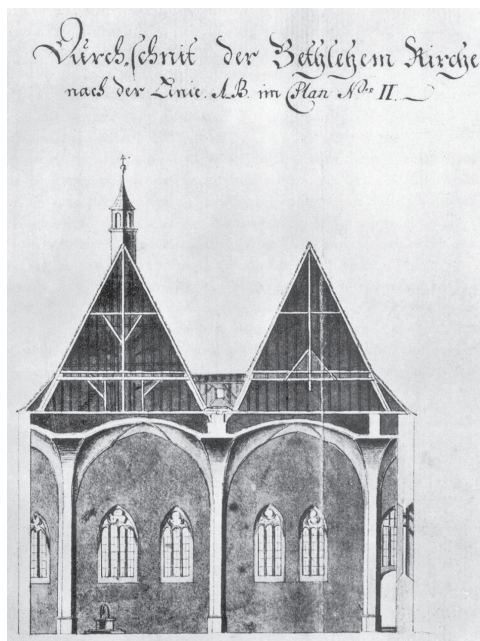 Durchschnit der Bethlehem Kirche
nach der Linie. A.B. im Plan Nro II.